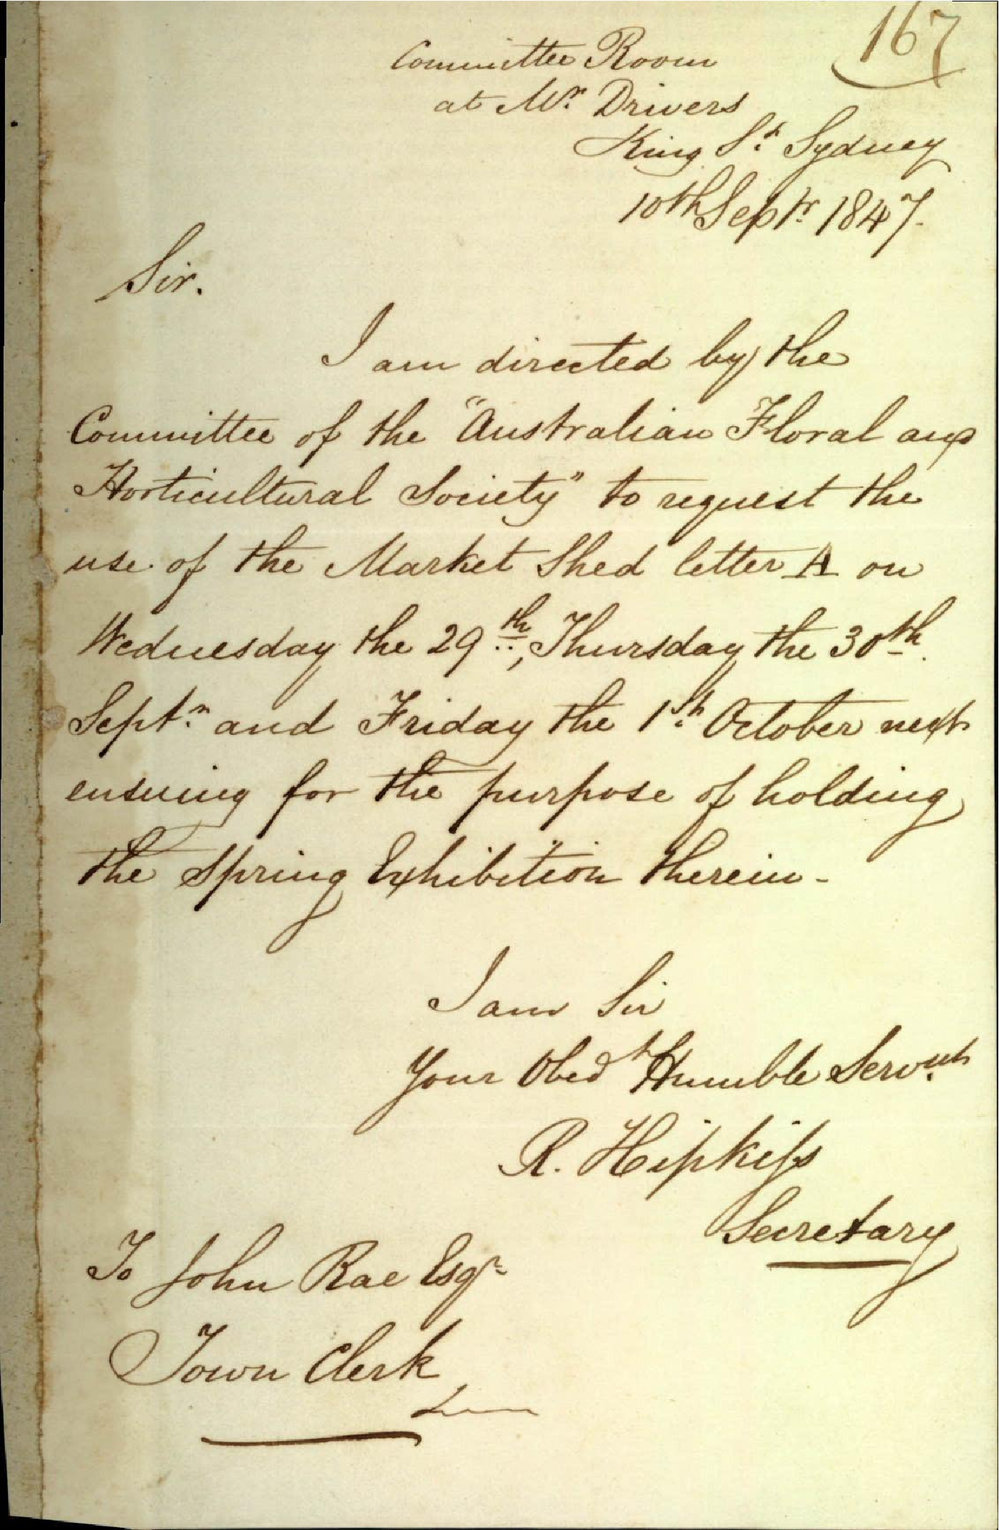 167
Committee Room
at Mr. Drivers
King St. Sydney
10th Septr. 1847.
Sir.
I am directed by the
Committee of the "Australian Floral and
Horticultural Society" to request the
use of the Market Shed letter A on
Wednesday the 29th, Thursday the 30th
Septr. and Friday the 1st. October next
ensuing for the purpose of holding
the Spring Exhibition therein -
I am Sir
Your Obedt Humble Servnt.
R. Hipkiſs
Secretary
To John Rae Esqr.
Town Clerk